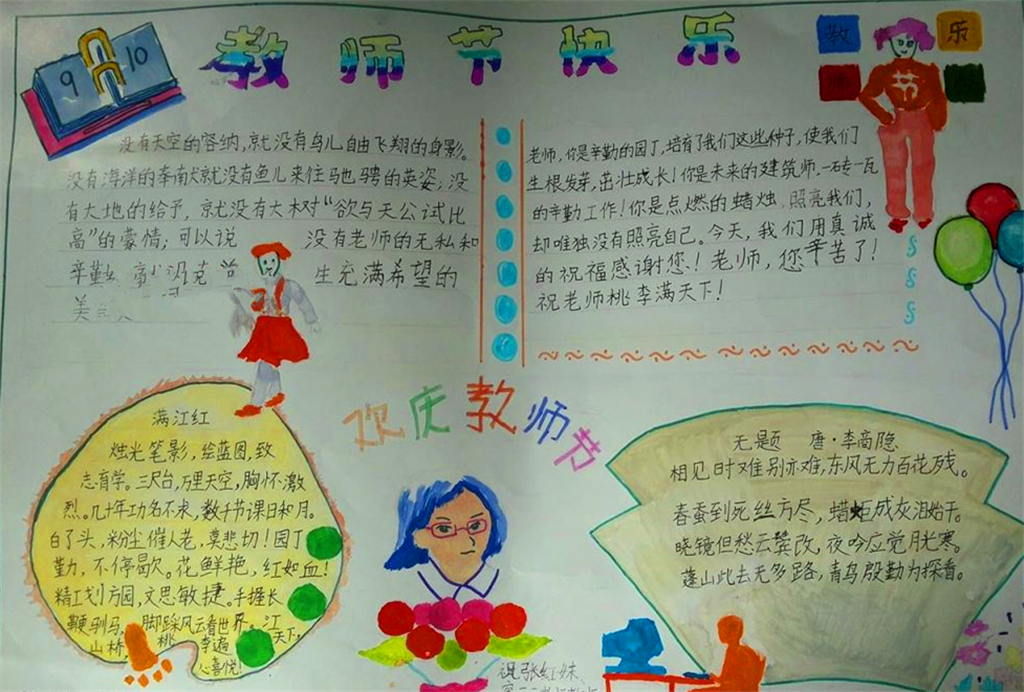 教师节快乐
9 10
教 乐
节
没有天空的容纳,就没有鸟儿自由飞翔的身影。
没有海洋的奉献就没有鱼儿来往驰骋的英姿;没
有大地的给予,就没有大树“欲与天公试比
高”的豪情;可以说 没有老师的无私和
辛勤 生充满希望的
美
老师,你是辛勤的园丁,培育了我们这些种子,使我们
生根发芽,茁壮成长!你是未来的建筑师,一砖一瓦
的辛勤工作!你是点燃的蜡烛,照亮我们,
却唯独没有照亮自己。今天,我们用真诚
的祝福感谢您!老师,您辛苦了!
祝老师桃李满天下!
欢庆教师节
满江红
烛光笔影,绘蓝图,致
志育学。三尺台,万里天空,胸怀激
烈。几十年功名不求,数千节课日和月。
白了头,粉尘催人老,莫悲切!园丁
勤力,不停歇。花鲜艳,红如血!
精工划方园,文思敏捷。手握长
鞭驯马,脚踩风云看世界。江
山桥,桃李遍天下,
心喜悦!
无题 唐·李商隐
相见时难别亦难,东风无力百花残。
春蚕到死丝方尽,蜡炬成灰泪始干。
晓镜但愁云鬓改,夜吟应觉月光寒。
蓬山此去无多路,青鸟殷勤为探看。
祝张红妹